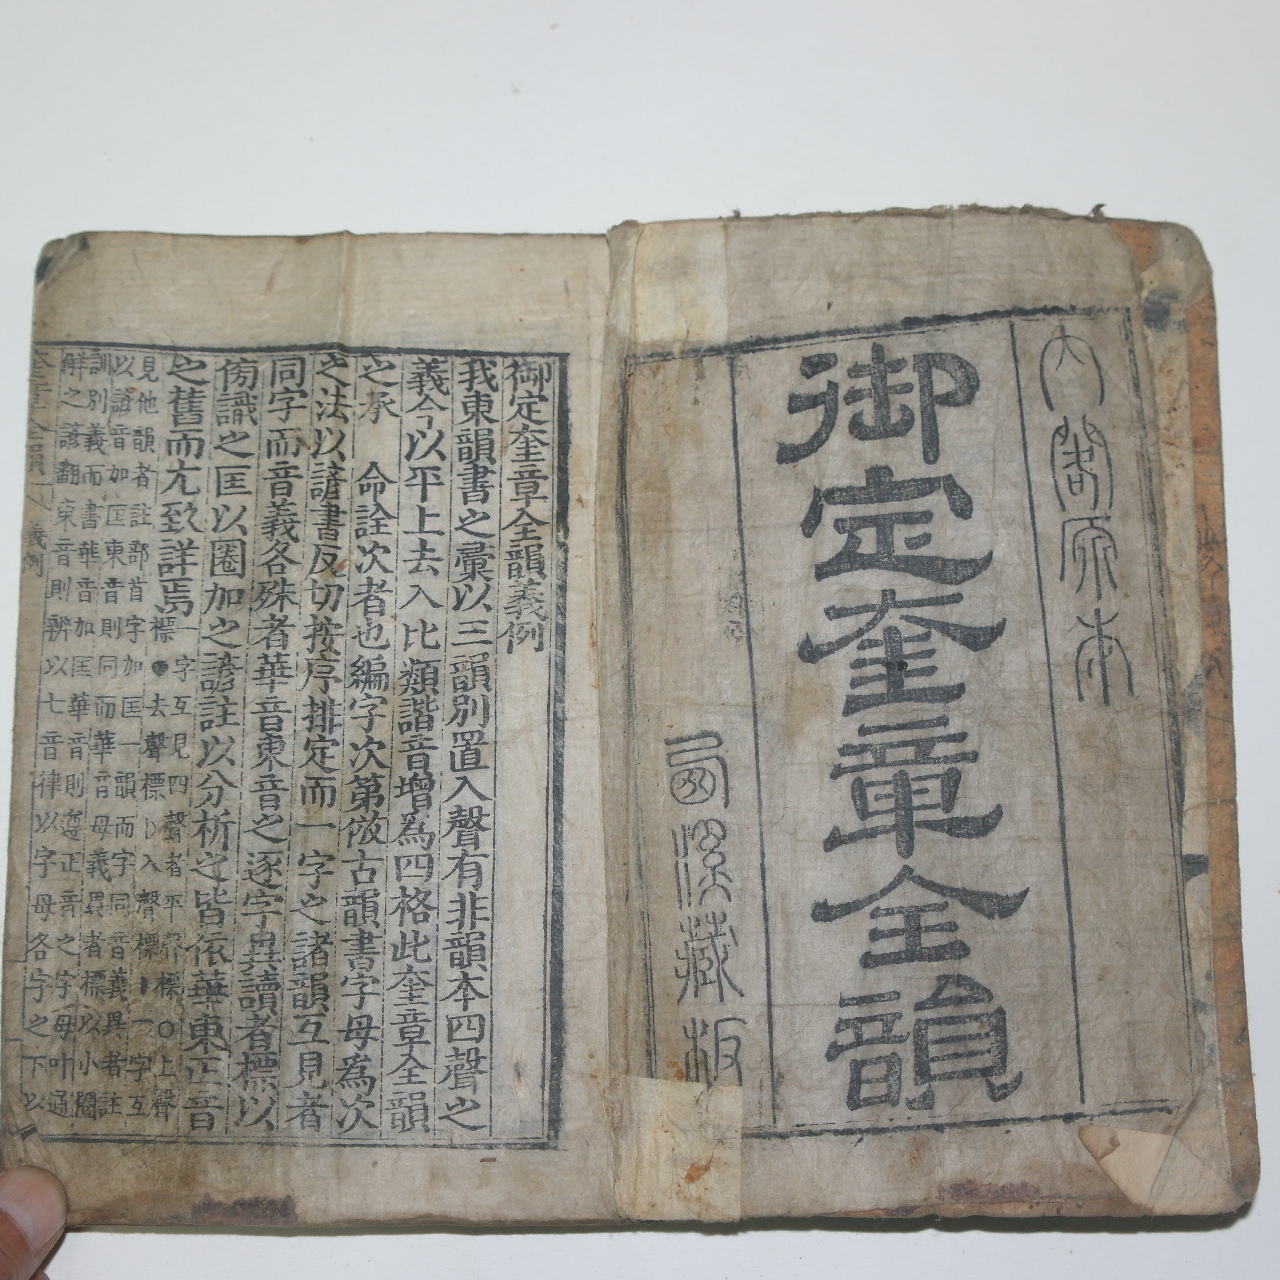 內閣原本
御定奎章全韻
藏板
御定奎章全韻義例
我東韻書之彙以三韻別置入聲有非韻本四聲之
義今以平上去入比類諧音增為四格此奎章全韻
之承 命詮次者也編字次第倣古韻書字母為次
之法以諺書反切按序排定而一字之諸韻互見者
同字而音義各殊者華音東音之逐字異讀者標以
傍識之匡以圈加之諺註以分析之皆依華東正音
之舊而尤致詳焉
一字互見四聲者平聲標○上聲
標●去聲標
入聲標
一字互
見他韻者註部首字加匡一韻而字同音義異者註
以諺音加匡東音則同而華音母義異者標以小圈
訓別義而書華音加匡華音則遵正音之字母叶通
解之諺翻東音則辨以七音律以字母各字之下以
奎章全韻 義例